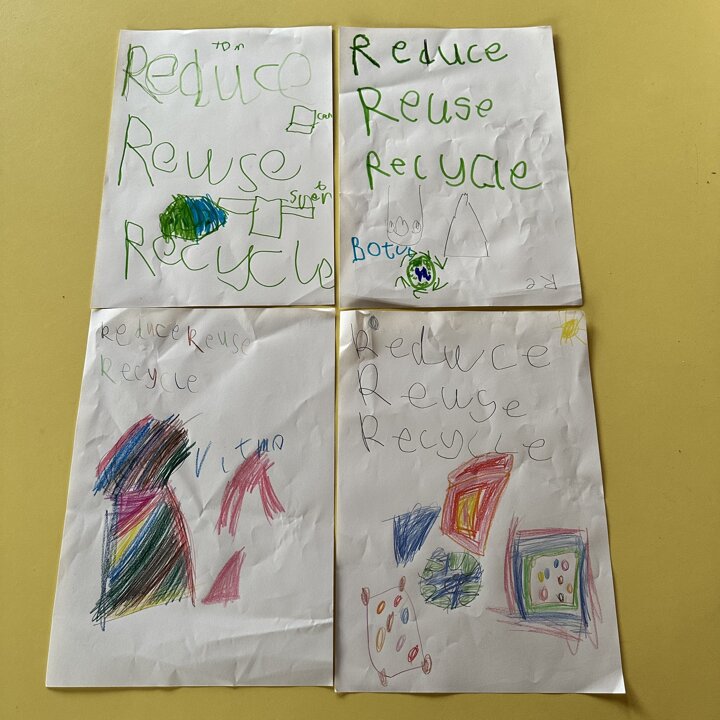 Reduce
can
Reuse
Recycle
Reduce
Reuse
Recycle
Re
Reduce Reuse
Recycle
Reduce
Reuse
Recycle